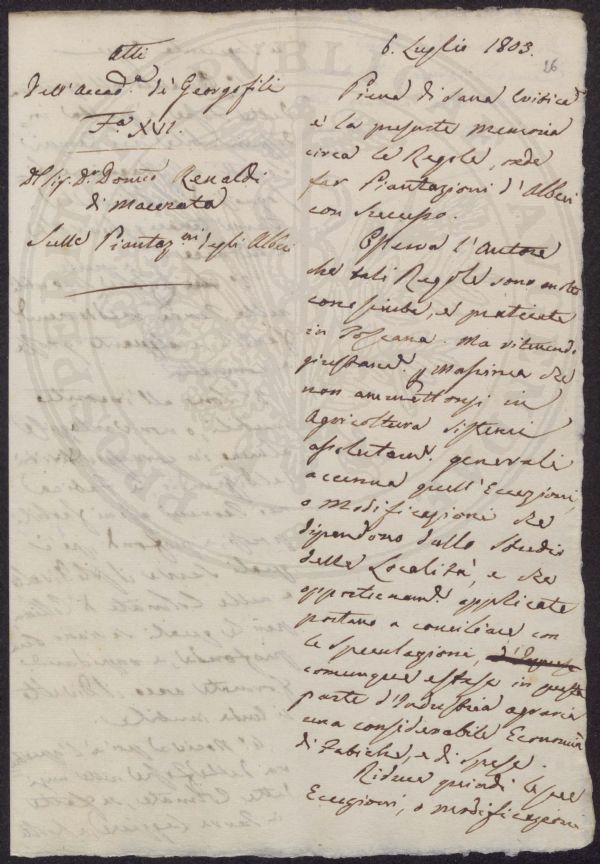 Atti
Dell'Accad.a de Georgofili
F.a XVI.
Del Sig.r D.r Domco Renaldi
di Macerata
Sulle Piantaz.oni degli Alberi
6. Luglio 1803.
26
Piena di sana critica
è la presente memoria
circa le Regole, onde
far Piantazioni d'Alberi
con Successo.
Osserva l'Autore
che tali Regole sono molto
conosciute, e praticate
in Toscana. Ma ritenendo
giustam.e p massima che
non ammettonsi in
Agricoltura sistemi
assolutam.e generali
accenna quell'Eccezioni,
o modificazioni che
dipendono dallo studio
delle Località, e che
opportunam.e applicate
portano a conciliare con
le speculazioni,
comunque estese in questa
parte d'Industria agraria
una considerabile Economia
di fatiche, e di spese.
Riduce quindi le sue
Eccezioni, o modificazioni